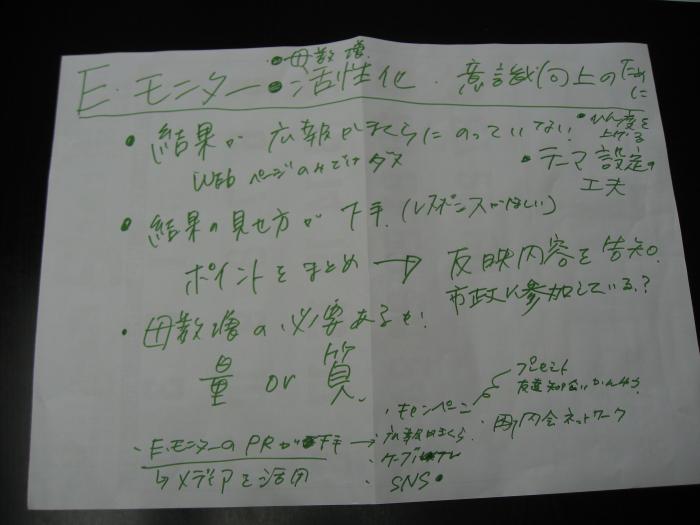 ・母数増
E.モニター・活性化.意識向上のために
・結果が広報かまくらにのっていない!
WEBページのみではダメ
・ひん度を上げる
・テーマ設定の工夫
・結果の見せ方が下手.(レスポンスがほしい)
ポイントをまとめ→反映内容を告知.
市政に参加している.?
・母数増の必要あるか!
量 or 質.
・E.モニターのPRが下手→
↳メディアを活用
・キャンペーン
プレゼント
友達
・広報かまくら
・ケーブルテレ
・SNS
・町内会ネットワーク